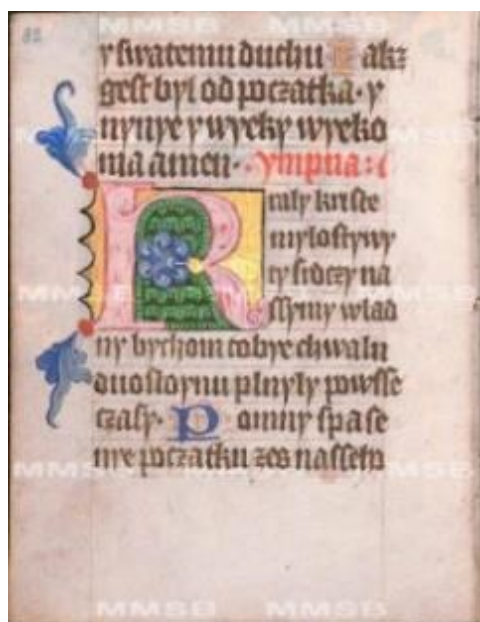 82
y swatemu duchu Iakz
gest byl od poczatka · y
nynye y wyeky wyeko
ma amen · ympna :
Kraly kriste
mylostywy
ty srdczy na
ssymy wlad
ny bychom tobye chwalu
duostoynu plnyly powsse
czasy · Pomny spase
nye poczatku zes nasseho
MMSB MMSB
MMSB MMSB
MMSB MMSB
MMSB MMSB
MMSB MMSB